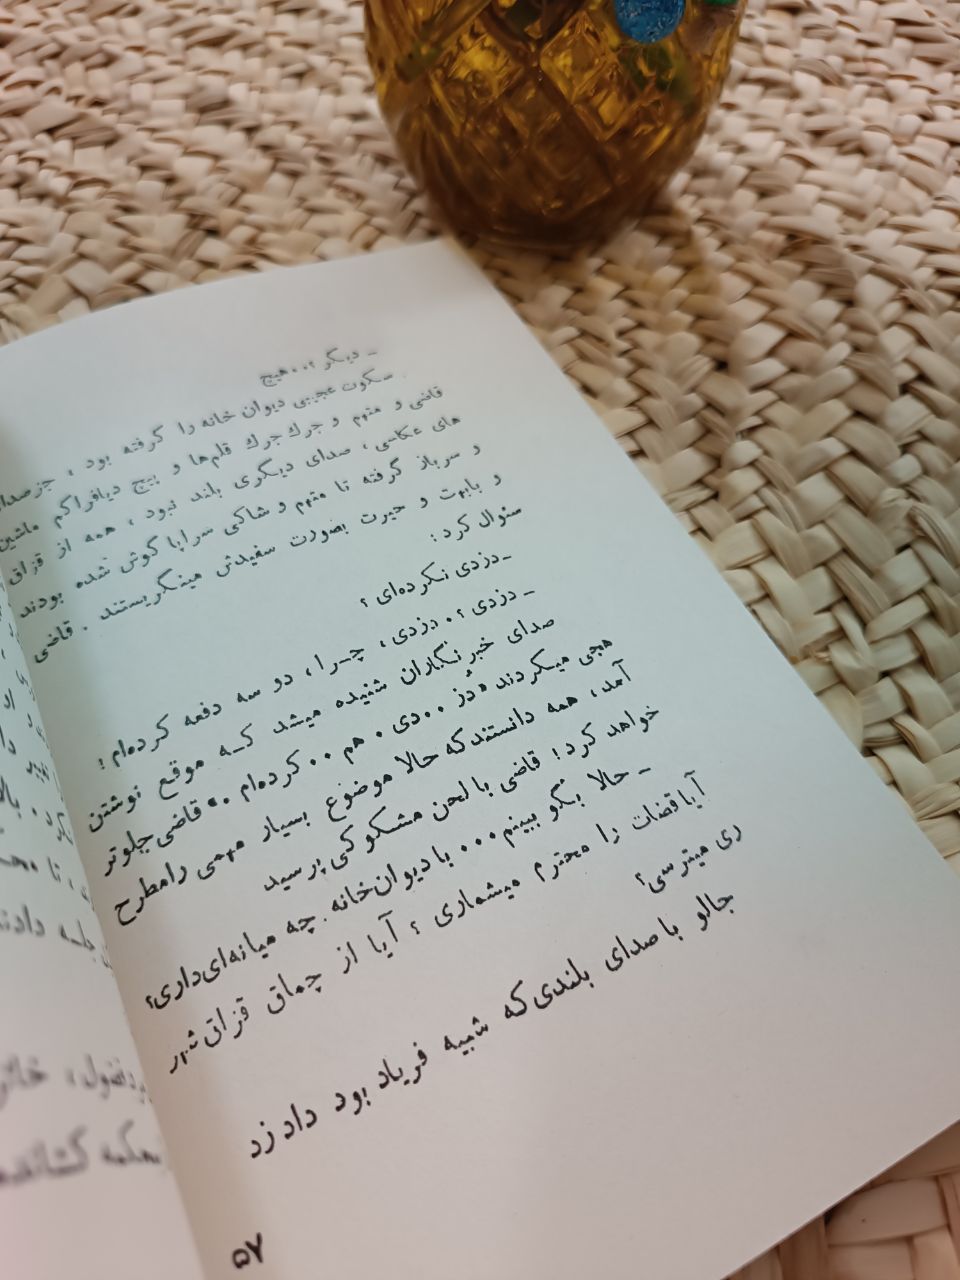 ـ دیگر ؟ . . هیچ
سکوت عجیبی دیوان خانه را گرفته بود ، جز صدای
قاضی و متهم و جرك جرك قلم‌ها و پیچ دیافراگم ماشین
های عکاسی ، صدای دیگری بلند نبود ، همه از قزاق
و سرباز گرفته تا متهم و شاکی سراپا گوش شده بودند
و بابهت و حیرت بصورت سفیدش مینگریستند . قاضی
سئوال کرد :
ـ دزدی نکرده‌ای ؟
ـ دزدی ؟ . دزدی ، چـرا ، دو سه دفعه کرده‌ام !
صدای خبرنگاران شنیده میشد کـه موقع نوشتن
هجی میکردند «دُز . . دی . هم . . کرده‌ام . » قاضی جلوتر
آمد ، همه دانستند که حالا موضوع بسیار مهمی را مطرح
خواهد کرد ؛ قاضی با لحن مشکوکی پرسید
ـ حالا بگو ببینم . . . با دیوان خانه . چه میانه‌ای داری ؟
آیا قضات را محترم میشماری ؟ آیا از چماق قزاق شهر
ری میترسی ؟
جالو با صدای بلندی که شبیه فریاد بود داد زد
۵۷
جلسه دادند
خائن
محکمه کشانده